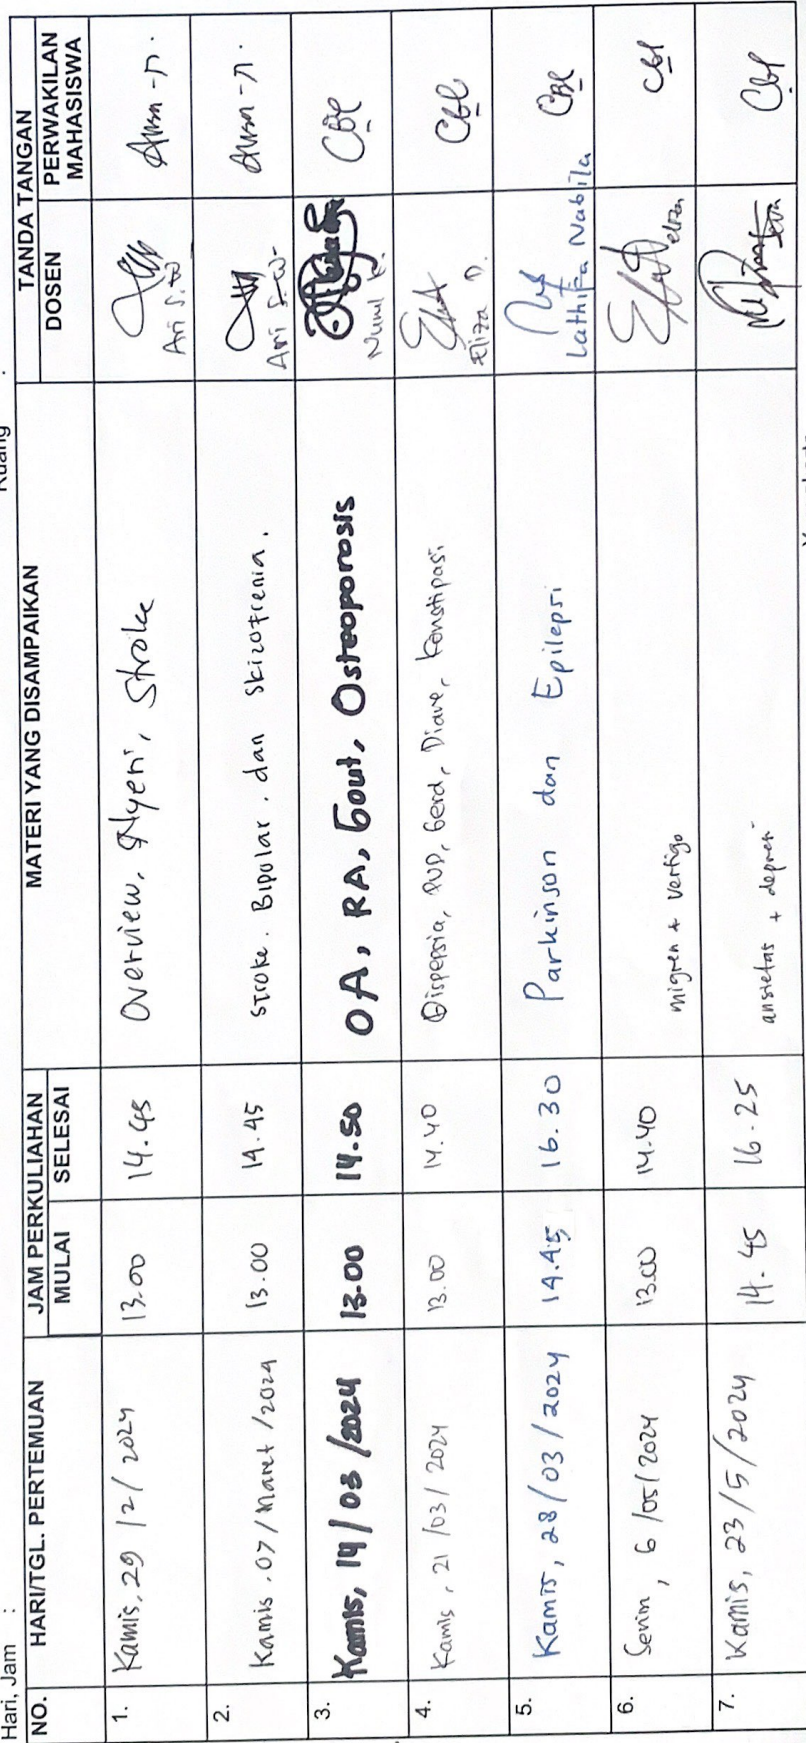 Hari, Jam :
Ruang :
NO. HARI/TGL. PERTEMUAN JAM PERKULIAHAN MATERI YANG DISAMPAIKAN TANDA TANGAN
MULAI SELESAI DOSEN PERWAKILAN MAHASISWA
1. Kamis, 29 / 2 / 2024 13.00 14.45 Overview, Nyeri, Stroke Ari S.W
2. Kamis, 07 / Maret / 2024 13.00 14.45 Stroke. Bipolar. dan Skizofrenia. Ari S.W
3. Kamis, 14 / 03 / 2024 13.00 14.50 OA, RA, Gout, Osteoporosis Nurul K.
4. Kamis, 21 / 03 / 2024 13.00 14.40 Dispepsia, PUD, Gerd, Diare, Konstipasi Eliza D.
5. Kamis, 28 / 03 / 2024 14.45 16.30 Parkinson dan Epilepsi Lathifa Nabila
6. Senin, 6 / 05 / 2024 13.00 14.40 migren + vertigo eliza
7. Kamis, 23 / 5 / 2024 14.45 16.25 ansietas + depresi